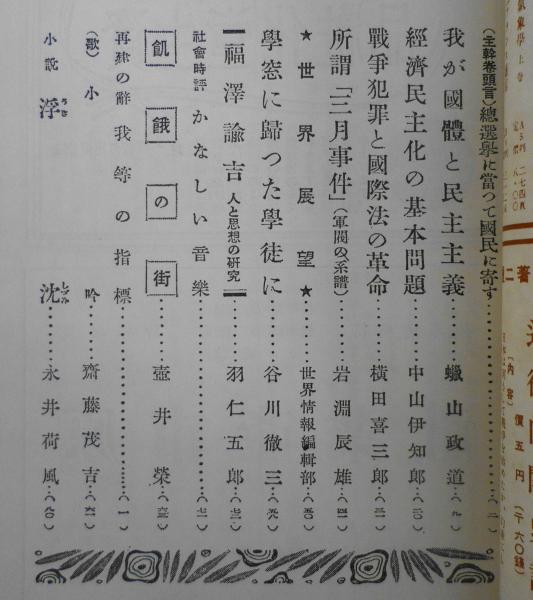 （主幹卷頭言）總選擧に當つて國民に寄す……（二）
我が國體と民主主義……蠟山政道…（九）
經濟民主化の基本問題……中山伊知郎…（二〇）
戰爭犯罪と國際法の革命……橫田喜三郎…（三一）
所謂「三月事件」（軍閥の系譜）……岩淵辰雄…（四一）
★世界展望★……世界情報編輯部…（五〇）
學窓に歸つた學徒に……谷川徹三…（五九）
福澤諭吉 人と思想の研究……羽仁五郎…（七三）
社會時評 かなしい音樂……（七一）
飢餓の街……壺井榮…（六三）
再建の辭 我等の指標……（一）
（歌）小吟……齋藤茂吉…（六一）
小說 浮沈……永井荷風…（八〇）
うき
しづみ
二著
（內容）
價五円